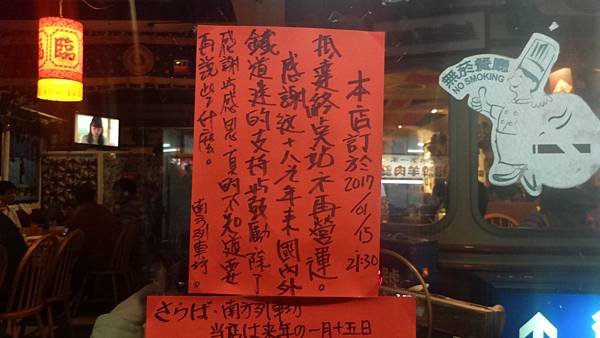 本店訂於2017/01/15 21:30
抵臺終点功不再營運。
感謝這十八年來國內外
鐵道迷的支持與鼓勵除了
感謝與感恩真的不知道要
再說些什麼。
南方列車坊。
さらば・南方列車坊
当店は来年の一月十五日
無菸餐廳
NO SMOKING
臨